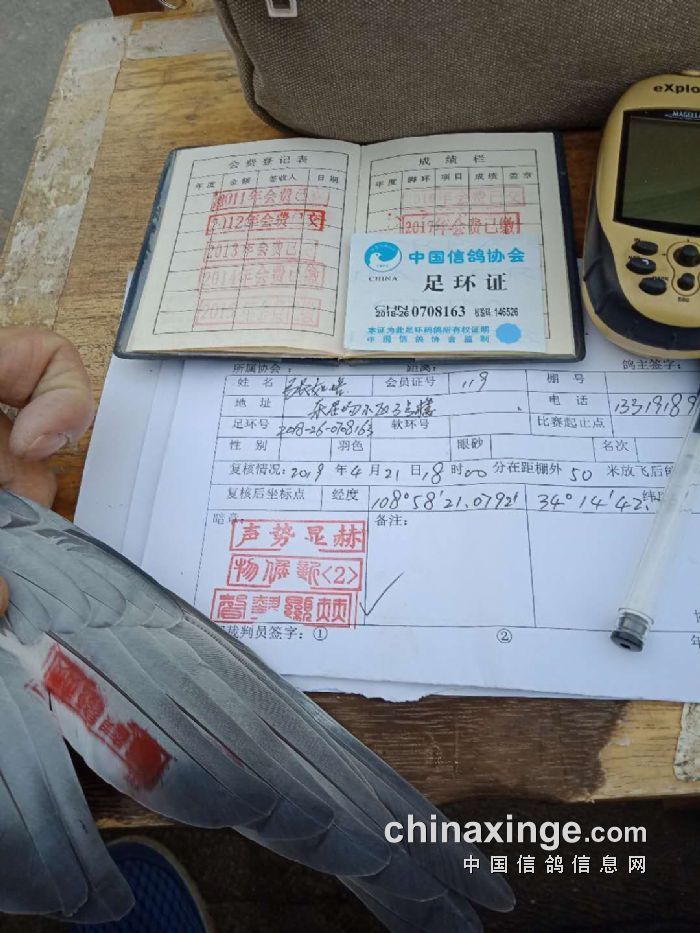 会费登记表
年度 金额 签收人 日期
2011年会费已
2012年会费已交
2013年会费已
2014年会费已缴
成绩栏
年度 脚环 项目 成绩 盖章
2017年会费已缴
中国信鸽协会
CHINA
足环证
CHN
2018-26 0708163 146526
本证为此足环鸽所有权证明
中国信鸽协会监制
eXplo
MAGELL
所属协会： 距离： 鸽主签字：
姓名 会员证号 119 棚号
地址 电话 13319189
足环号 2018-26-0708163 软环号 比赛起止点
性别 羽色 眼砂 名次
复核情况：2019年4月21日18时00分在距棚外50米放飞后
复核后坐标点 经度 108°58′21.0792′ 34°14′42
暗章： 备注：
声势显赫
物 新<2>
裁判员签字：① ②
年
chinaxinge.com
中国信鸽信息网